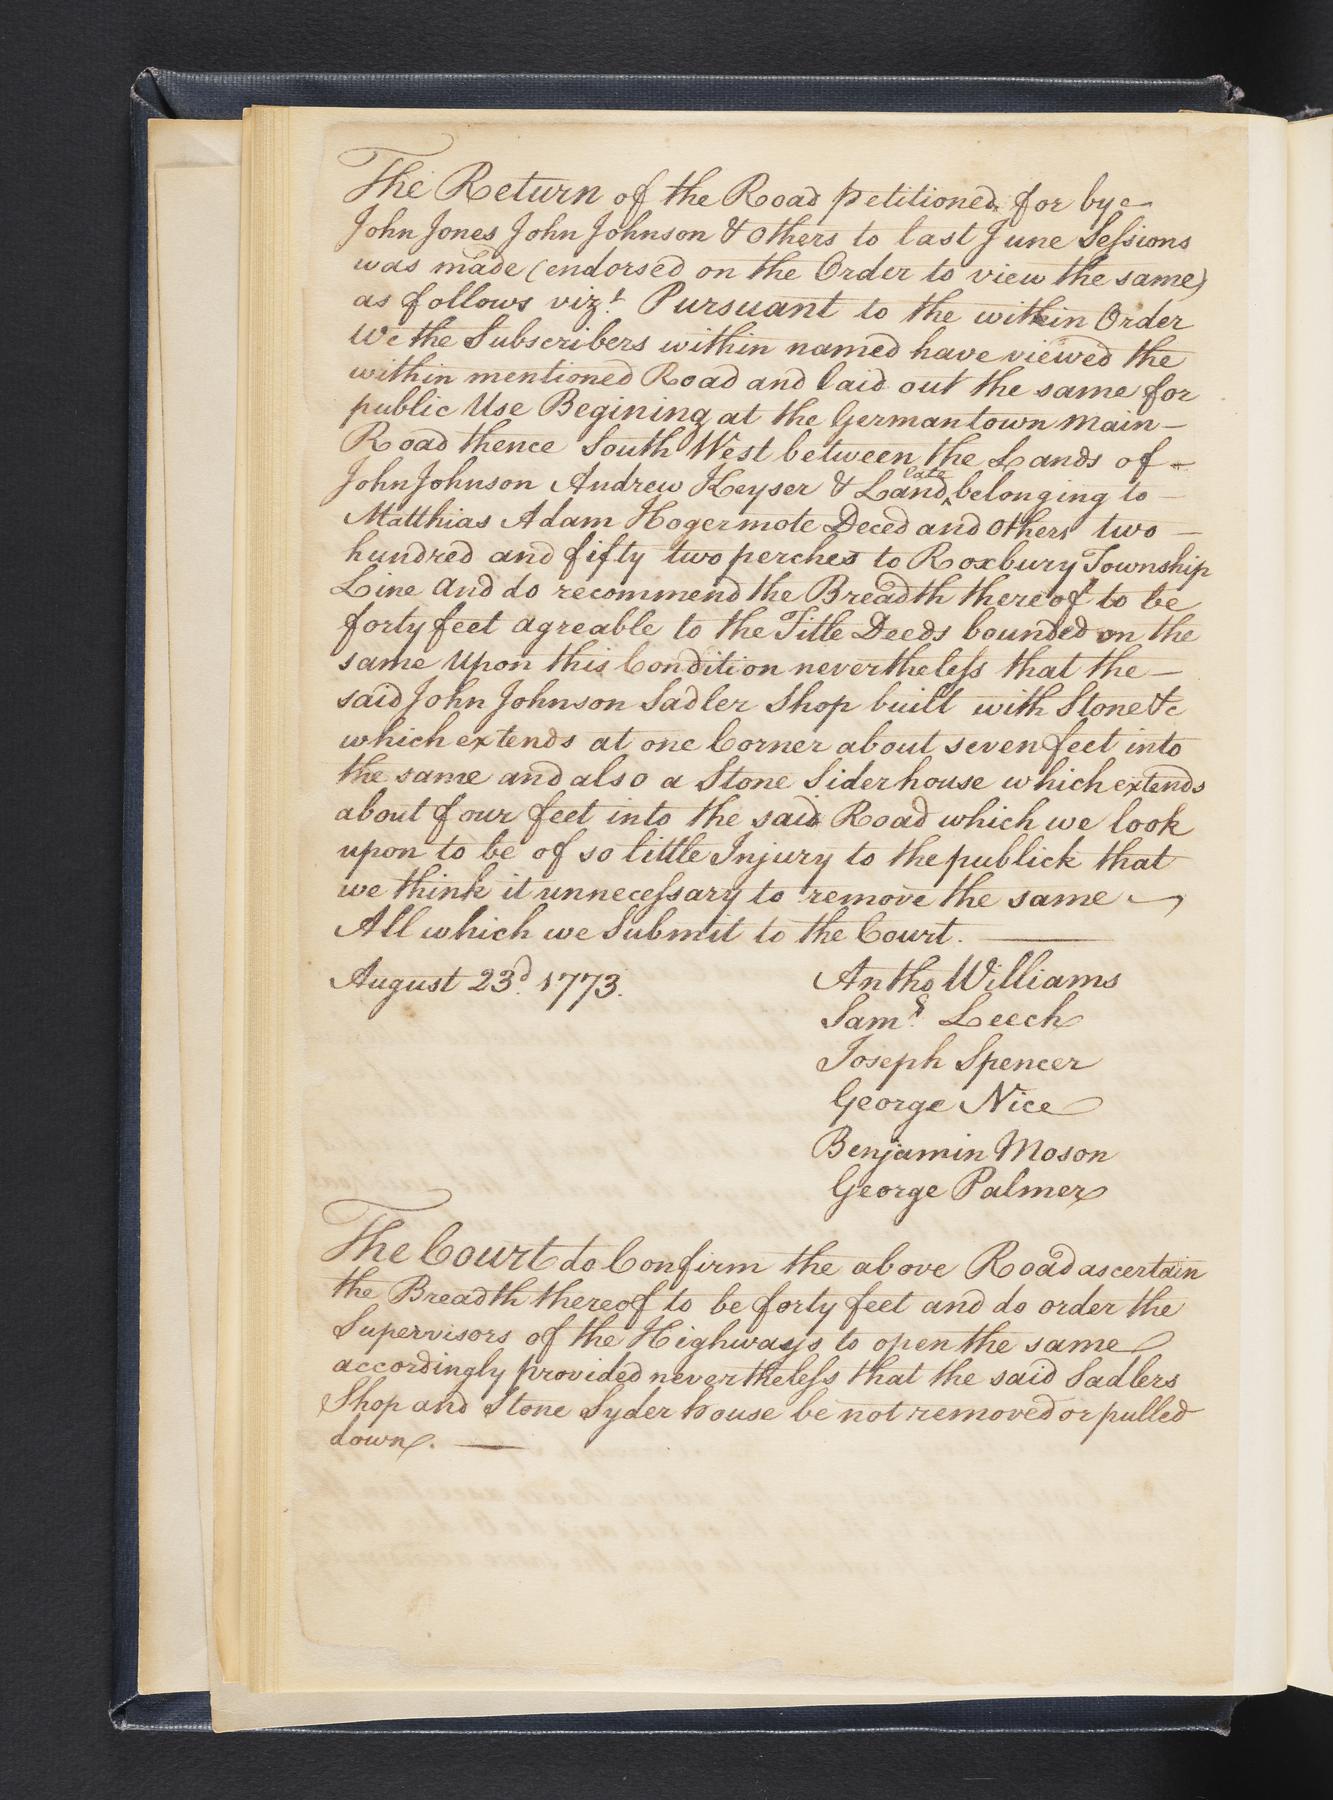 The Return of the Road petitioned for by
John Jones John Johnson & Others to last June Seſsions
was made (endorsed on the Order to view the same)
as follows vizt. Pursuant to the within Order
We the Subscribers within named have viewed the
within mentioned Road and laid out the same for
public Use Begining at the Germantown Main—
Road thence South West between the Lands of —
John Johnson Andrew Keyser & Land ^late belonging to —
Matthias Adam Hogermote Deced and Others two —
hundred and fifty two perches to Roxbury Township
Line and do recommend the Breadth thereof to be
forty feet agreable to the Title Deeds bounded on the
same Upon this Condition nevertheleſs that the —
said John Johnson Sadler Shop built with Stone &c
which extends at one Corner about seven feet into
the same and also a Stone Siderhouse which extends
about four feet into the said Road which we look
upon to be of so little Injury to the publick that
we think it unneceſsary to remove the same —
All which we Submit to the Court. —
August 23d. 1773.
Antho Williams
Saml. Leech
Joseph Spencer
George Nice
Benjamin Moson
George Palmer
The Court do Confirm the above Road ascertain
the Breadth thereof to be forty feet and do order the
Supervisors of the Highways to open the same
accordingly provided nevertheleſs that the said Sadlers
Shop and Stone Syder house be not removed or pulled
down. —